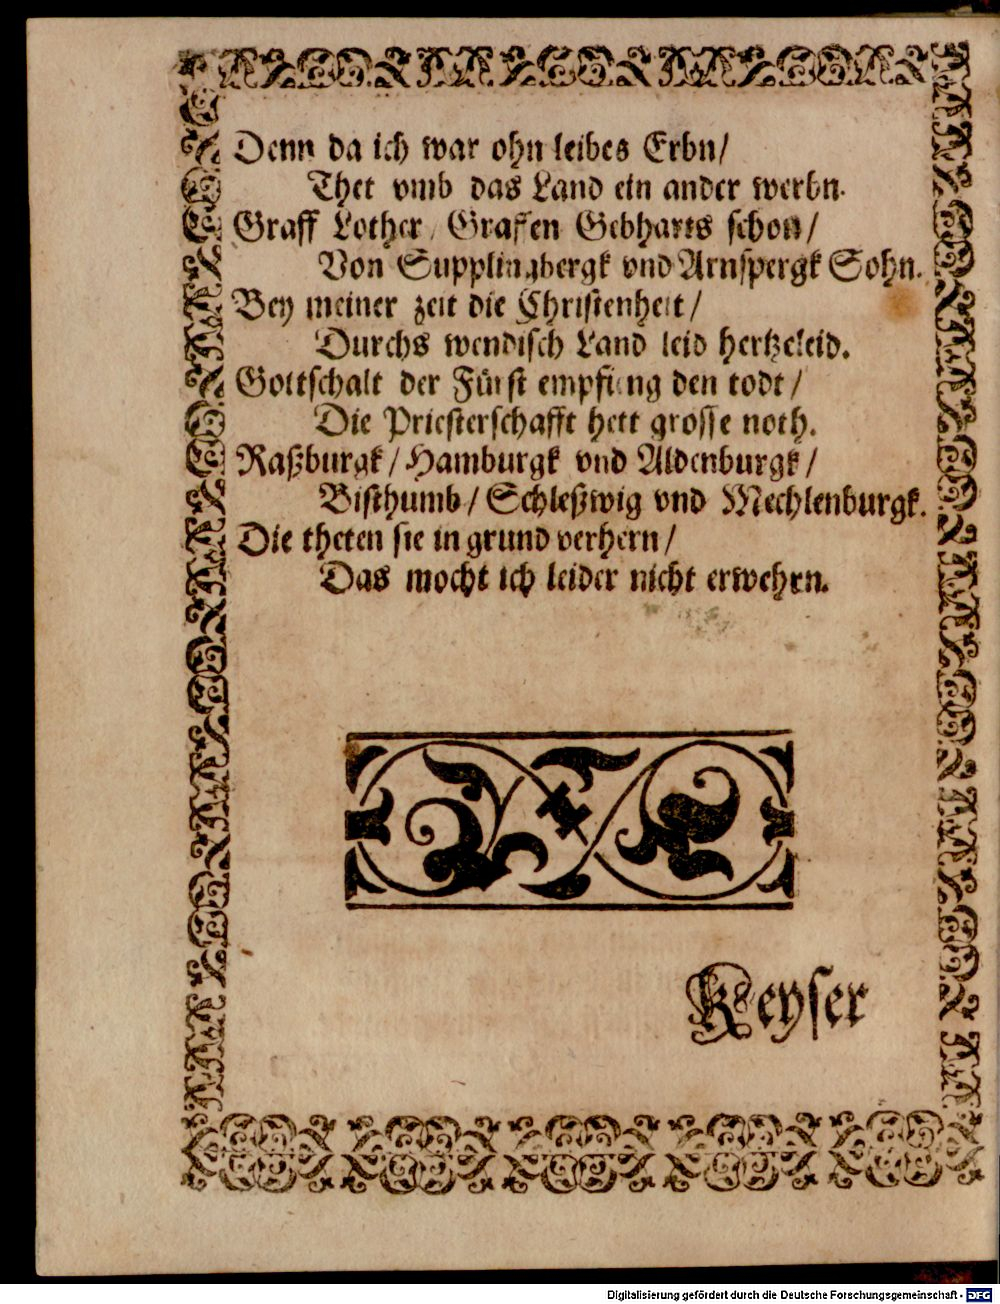 Denn da ich war ohn leibes Erbn/
Thet vmb das Land ein ander werbn.
Graff Lother/ Graffen Gebharts schon/
Von Supplingbergk vnd Arnspergk Sohn.
Bey meiner zeit die Christenheit/
Durchs wendisch Land leid hertzeleid.
Gottschalt der Fürst empfieng den todt/
Die Priesterschafft hett grosse noth.
Raßburgk/ Hamburgk vnd Aldenburgk/
Bisthumb/ Schleßwig vnd Mechlenburgk.
Die theten sie in grund verhern/
Das mocht ich leider nicht erwehrn.
Keyser
Digitalisierung gefördert durch die Deutsche Forschungsgemeinschaft - DFG